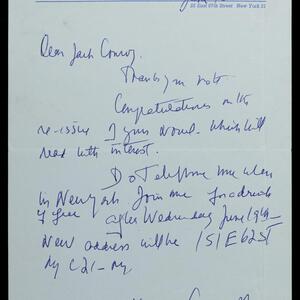 East 67th Street New York 21
Dear Jack Conroy,
Thanks your note
Congratulations on the
re-issue of your novel - which will
read with interest.
Do telephone me when
in New York. Join me for a drink
if free after Wednesday June 19th -
New address will be 151 E 62 ST
NY C 21 - NY